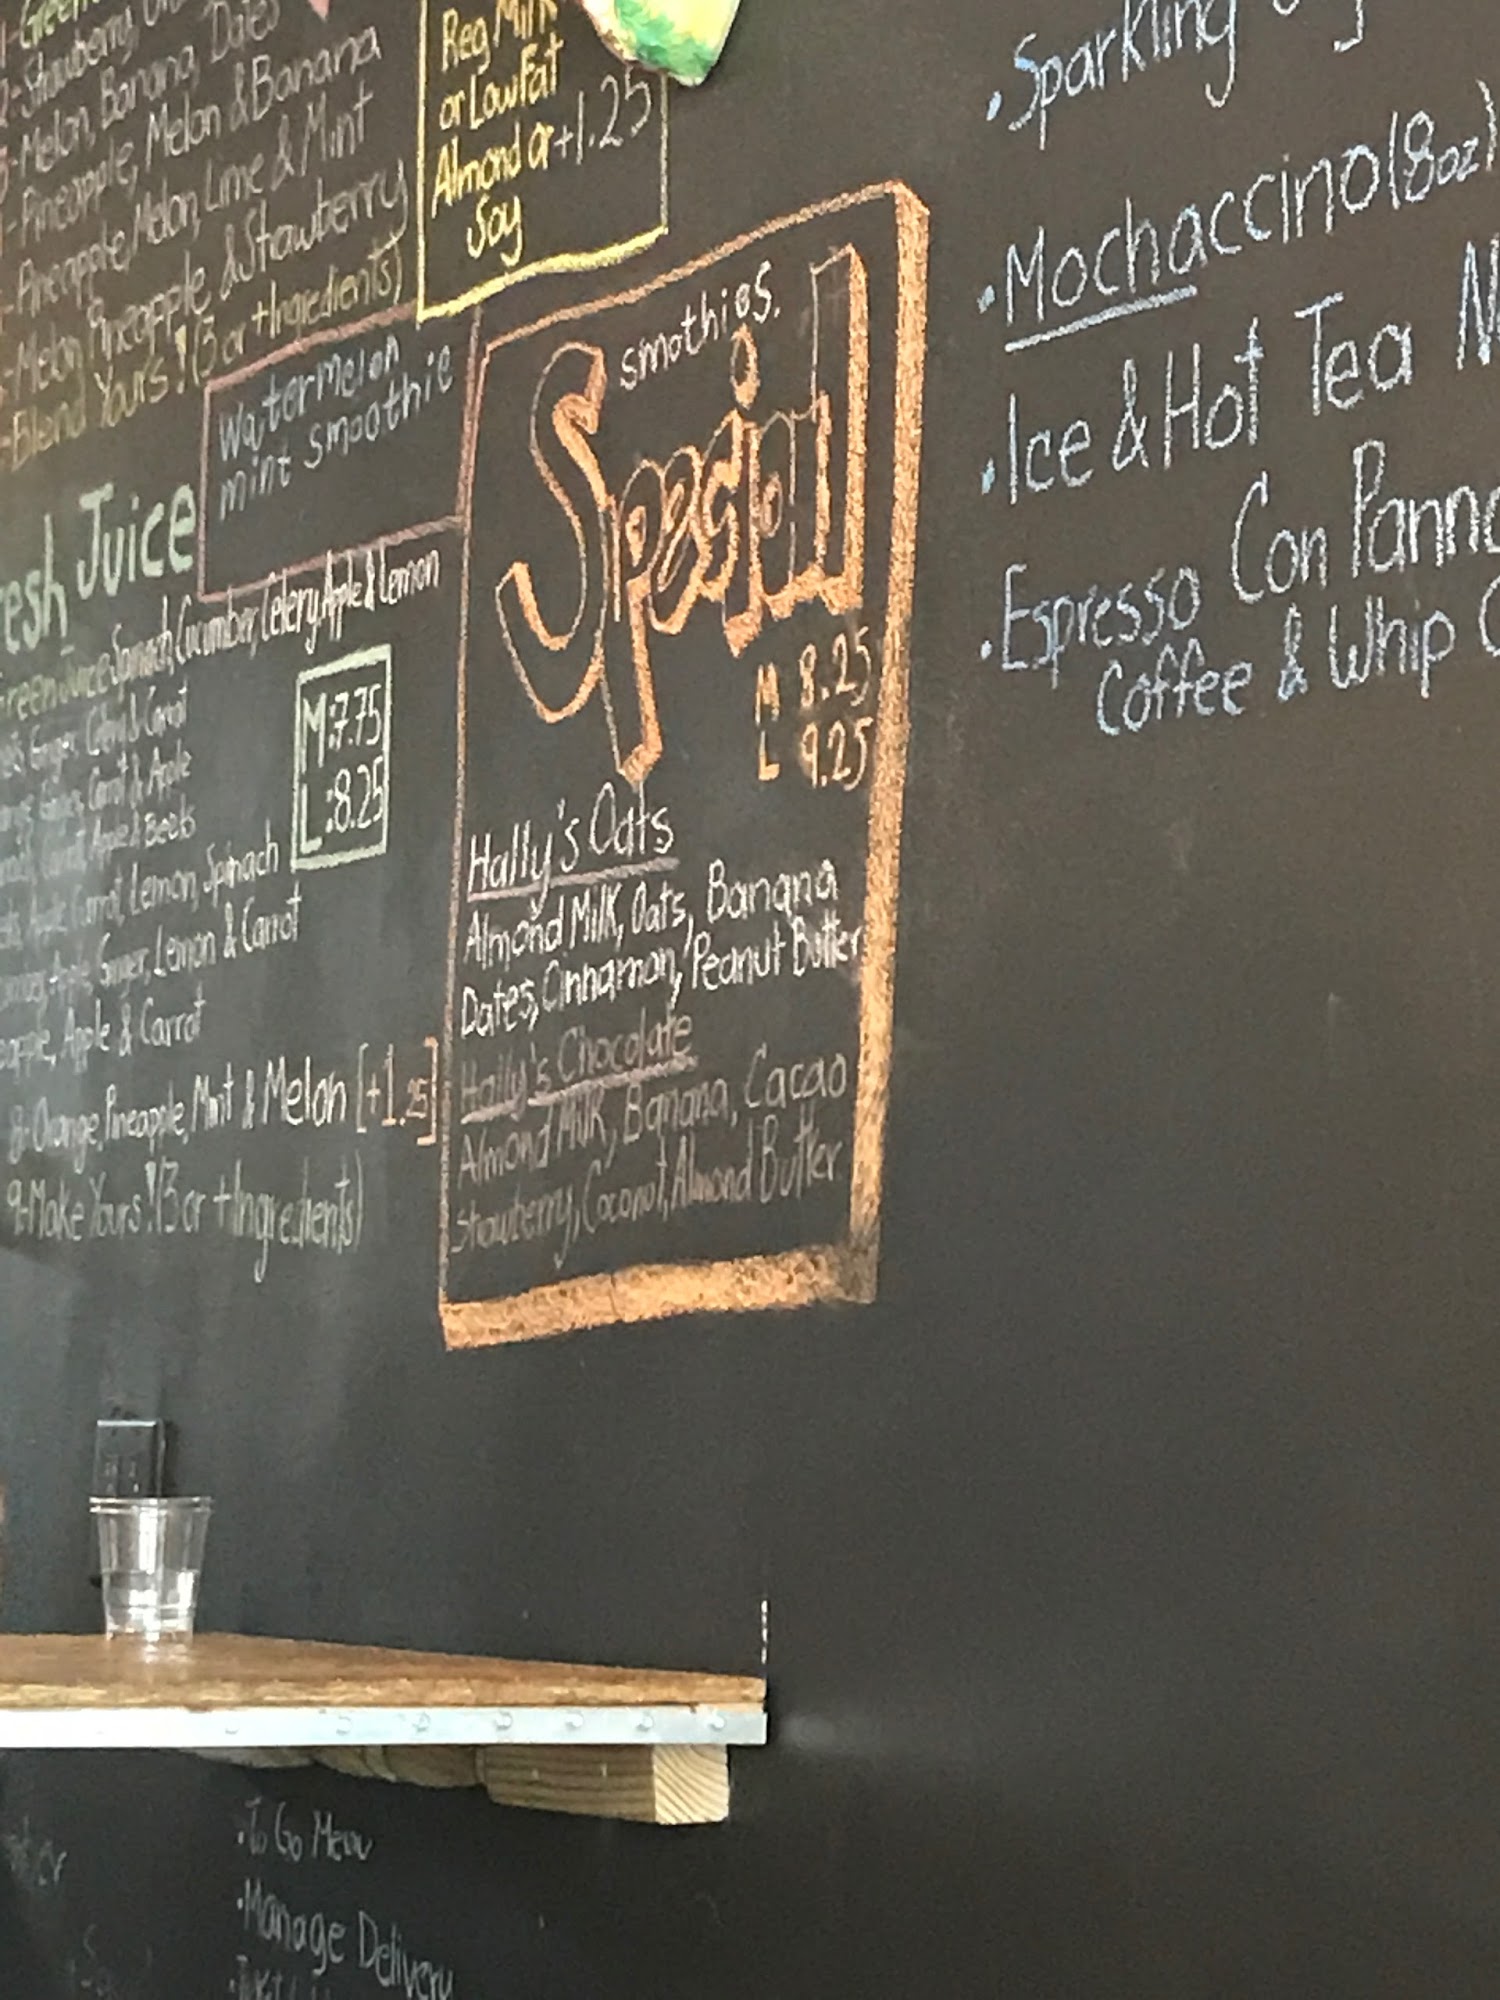 Strawberry,
Melon, Banana, Dates
Pineapple, Melon & Banana
Pineapple, Melon, Lime & Mint
Melon, Pineapple & Strawberry
Blend Yours! (3 or + Ingredients)
Reg Milk
or LowFat
Almond or +1.25
Soy
Watermelon
mint smoothie
Juice
Green Juice: Spinach, Cucumber, Celery, Apple & Lemon
Ginger, Celery & Carrot
Carrot & Apple
Carrot, Apple & Beets
Apple, Carrot, Lemon, Spinach
Apple, Ginger, Lemon & Carrot
Apple & Carrot
8-Orange, Pineapple, Mint & Melon [+1.25]
9-Make Yours! (3 or + Ingredients)
M:7.75
L:8.25
smothies.
Special
M 8.25
L 9.25
Hally's Oats
Almond Milk, Oats, Banana
Dates, Cinnamon, Peanut Butter
Hally's Chocolate
Almond Milk, Banana, Cacao
Strawberry, Coconut, Almond Butter
• Sparkling
• Mochaccino (8oz)
• Ice & Hot Tea
• Espresso Con Panna
Coffee & Whip
• To Go Menu
• Manage Delivery